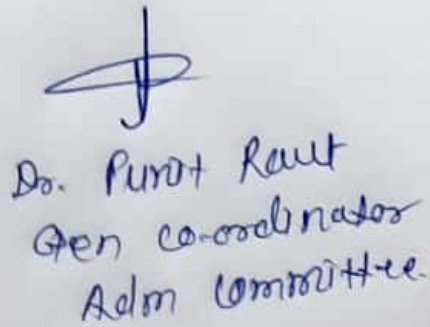 Dr. Punit Raut
Gen Co-ordinator
Adm Committee.